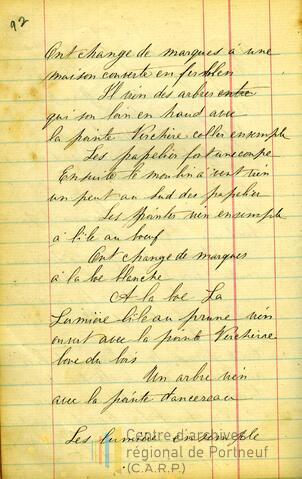 92
Ont change de marques à une
maison couverte en ferblen
Il vien des arbres entre
qui son loin en haud avec
la pointe Verchère coller ensemple
Les papelier font une coupe
Ensuite le moulin à vent vien
un peut au Sud des papelier
Les Pointes vien ensemple
à l'ile au boeuf
Ont change de marques
à la boe blanche
A la boe La
Lumière l'ile au prune vien
ouvrt avec la pointe Verchère
boue du bois
Un arbre vien
avec la pointe dancereau
Les lumière ensemple
Centre d'archives
régional de Portneuf
(C.A.R.P.)